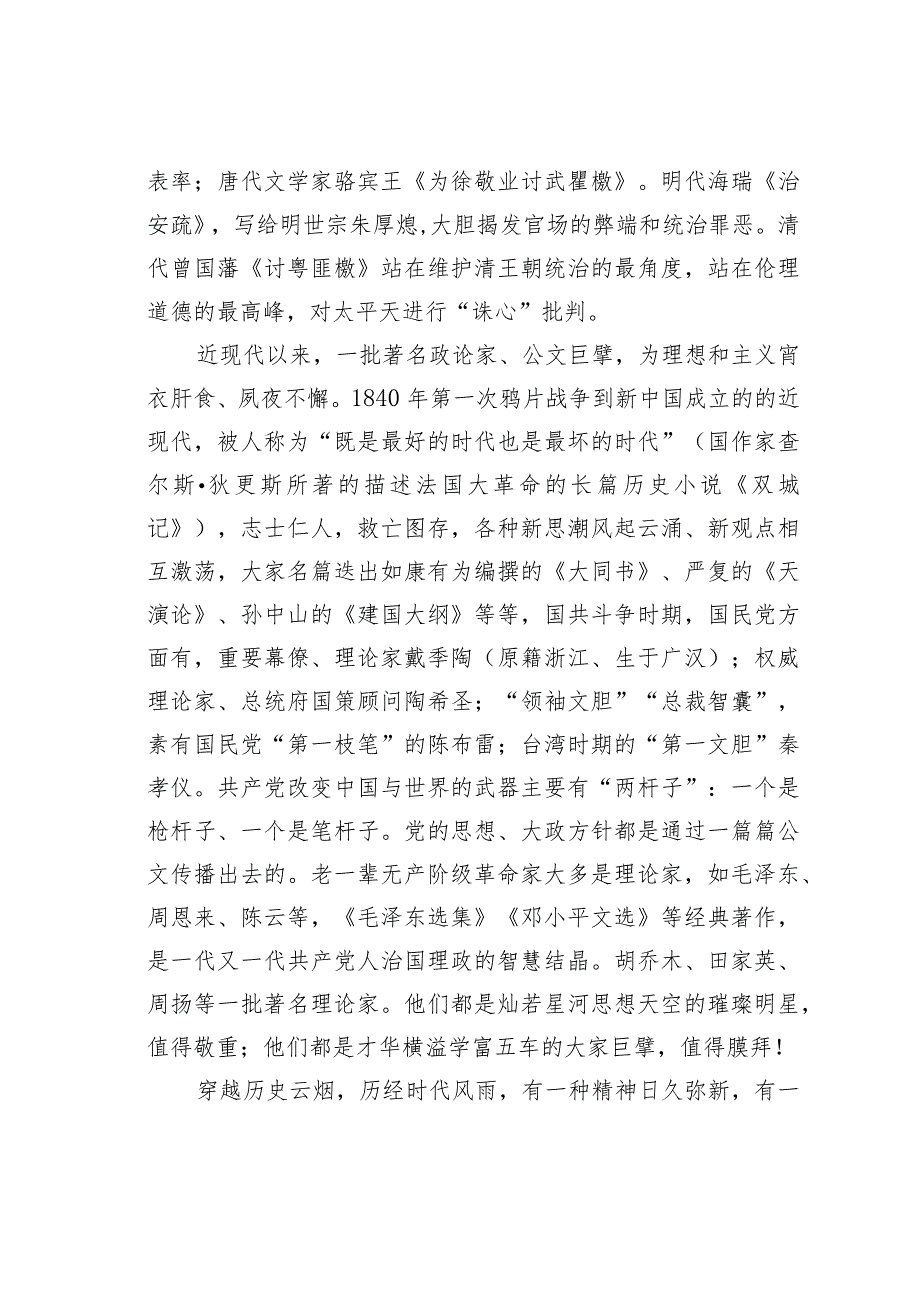 表率；唐代文学家骆宾王《为徐敬业讨武瞿檄》。明代海瑞《治
安疏》，写给明世宗朱厚熜,大胆揭发官场的弊端和统治罪恶。清
代曾国藩《讨粤匪檄》站在维护清王朝统治的最角度，站在伦理
道德的最高峰，对太平天进行“诛心”批判。
近现代以来，一批著名政论家、公文巨擘，为理想和主义宵
衣肝食、夙夜不懈。1840年第一次鸦片战争到新中国成立的的近
现代，被人称为“既是最好的时代也是最坏的时代”（国作家查
尔斯•狄更斯所著的描述法国大革命的长篇历史小说《双城
记》），志士仁人，救亡图存，各种新思潮风起云涌、新观点相
互激荡，大家名篇迭出如康有为编撰的《大同书》、严复的《天
演论》、孙中山的《建国大纲》等等，国共斗争时期，国民党方
面有，重要幕僚、理论家戴季陶（原籍浙江、生于广汉）；权威
理论家、总统府国策顾问陶希圣；“领袖文胆”“总裁智囊”，
素有国民党“第一枝笔”的陈布雷；台湾时期的“第一文胆”秦
孝仪。共产党改变中国与世界的武器主要有“两杆子”：一个是
枪杆子、一个是笔杆子。党的思想、大政方针都是通过一篇篇公
文传播出去的。老一辈无产阶级革命家大多是理论家，如毛泽东、
周恩来、陈云等，《毛泽东选集》《邓小平文选》等经典著作，
是一代又一代共产党人治国理政的智慧结晶。胡乔木、田家英、
周扬等一批著名理论家。他们都是灿若星河思想天空的璀璨明星，
值得敬重；他们都是才华横溢学富五车的大家巨擘，值得膜拜！
穿越历史云烟，历经时代风雨，有一种精神日久弥新，有一